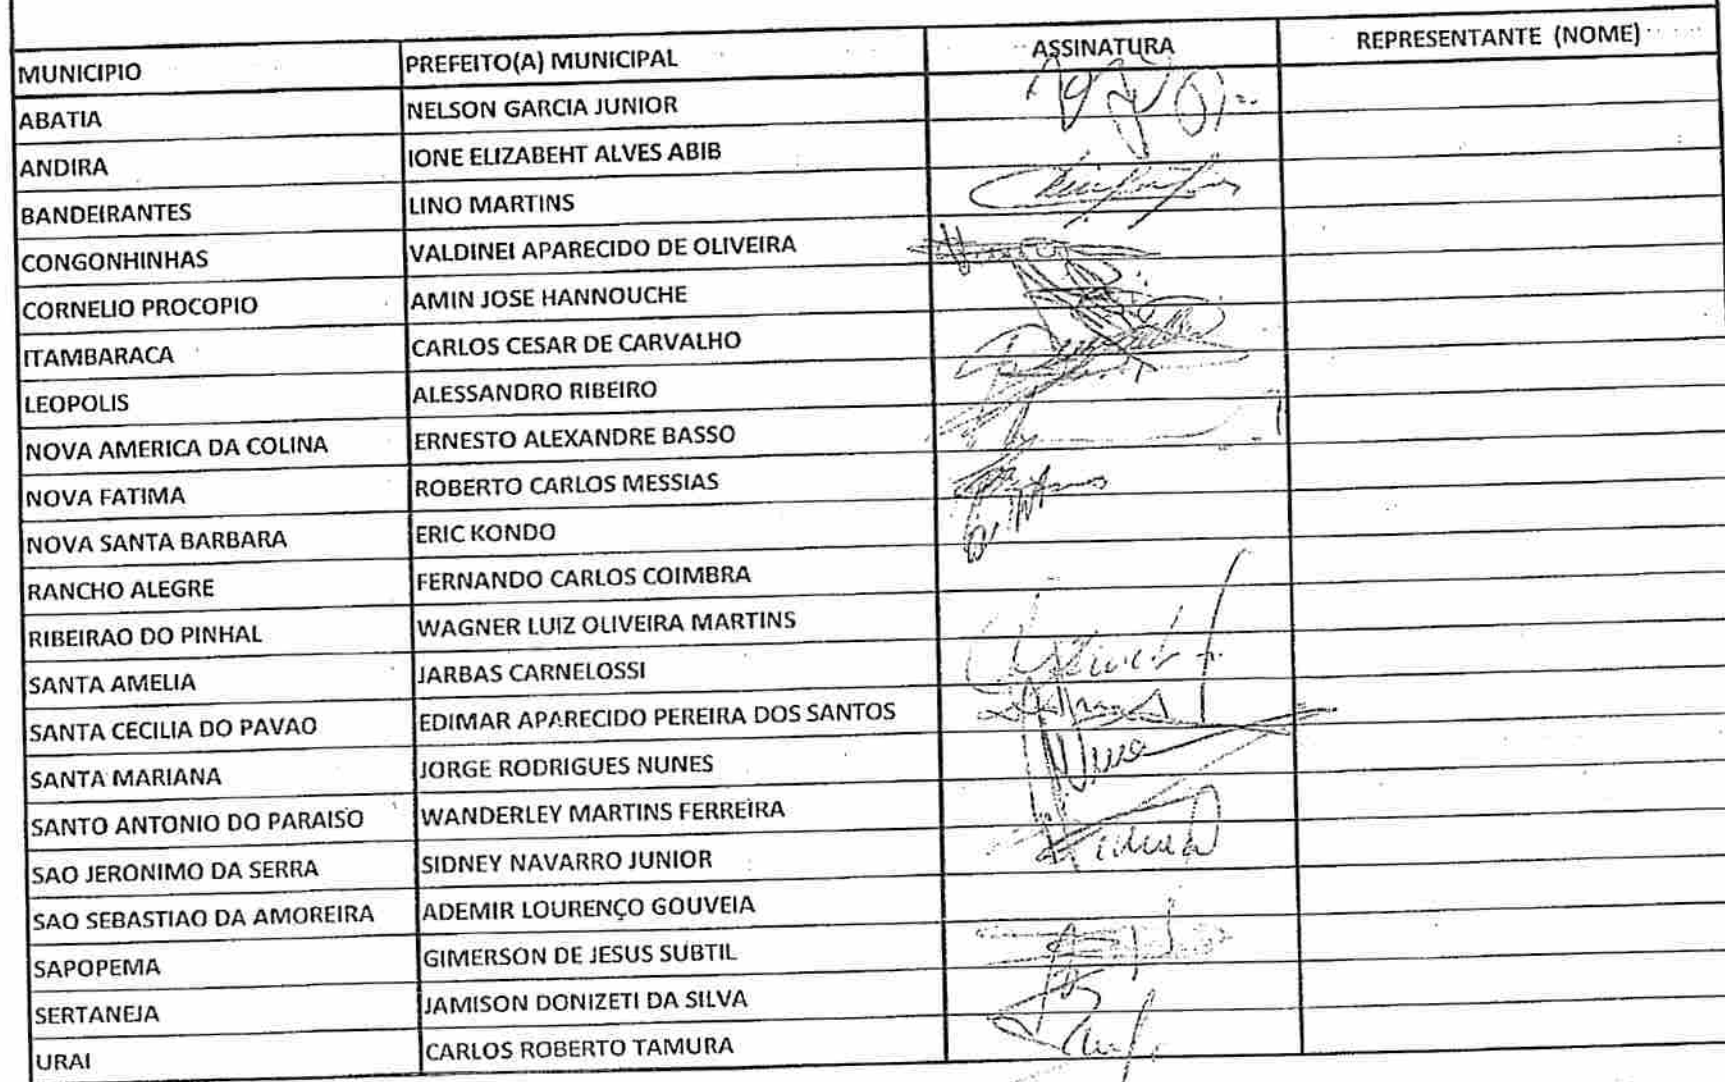 MUNICIPIO PREFEITO(A) MUNICIPAL ASSINATURA REPRESENTANTE (NOME)
ABATIA NELSON GARCIA JUNIOR
ANDIRA IONE ELIZABEHT ALVES ABIB
BANDEIRANTES LINO MARTINS
CONGONHINHAS VALDINEI APARECIDO DE OLIVEIRA
CORNELIO PROCOPIO AMIN JOSE HANNOUCHE
ITAMBARACA CARLOS CESAR DE CARVALHO
LEOPOLIS ALESSANDRO RIBEIRO
NOVA AMERICA DA COLINA ERNESTO ALEXANDRE BASSO
NOVA FATIMA ROBERTO CARLOS MESSIAS
NOVA SANTA BARBARA ERIC KONDO
RANCHO ALEGRE FERNANDO CARLOS COIMBRA
RIBEIRAO DO PINHAL WAGNER LUIZ OLIVEIRA MARTINS
SANTA AMELIA JARBAS CARNELOSSI
SANTA CECILIA DO PAVAO EDIMAR APARECIDO PEREIRA DOS SANTOS
SANTA MARIANA JORGE RODRIGUES NUNES
SANTO ANTONIO DO PARAISO WANDERLEY MARTINS FERREIRA
SAO JERONIMO DA SERRA SIDNEY NAVARRO JUNIOR
SAO SEBASTIAO DA AMOREIRA ADEMIR LOURENÇO GOUVEIA
SAPOPEMA GIMERSON DE JESUS SUBTIL
SERTANEJA JAMISON DONIZETI DA SILVA
URAI CARLOS ROBERTO TAMURA